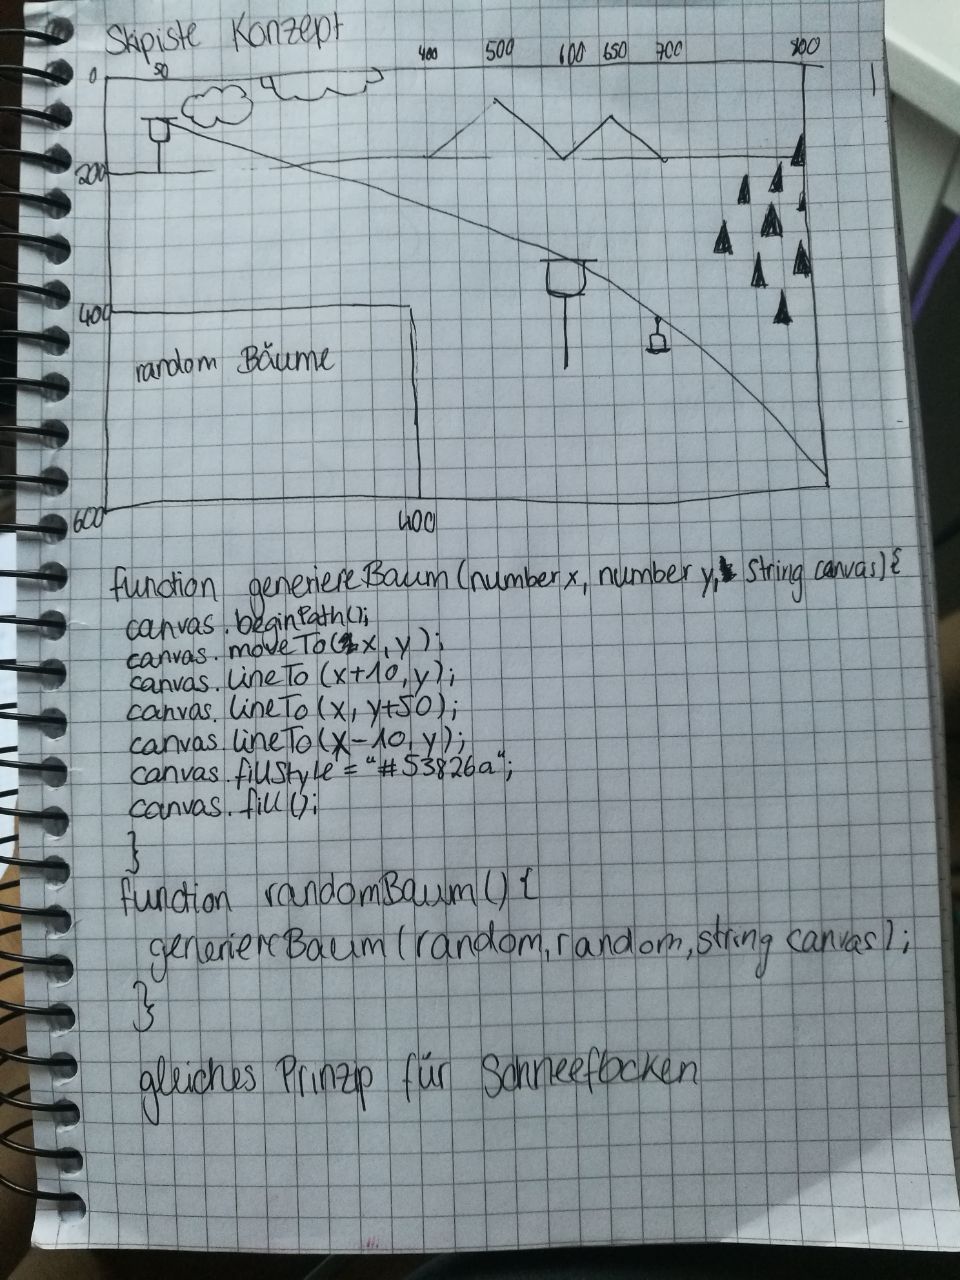 Skipiste Konzept
400 500 600 650 700 800
0 50
200
400
random Bäume
600 400
function generiereBaum (number x, number y, string canvas) {
canvas.beginPath();
canvas.moveTo(x, y);
canvas.lineTo (x+10, y);
canvas.lineTo (x, y+50);
canvas.lineTo(x-10, y);
canvas.fillStyle = "#53826a";
canvas.fill();
}
function randomBaum () {
generiereBaum (random, random, string canvas);
}
gleiches Prinzip für Schneeflocken